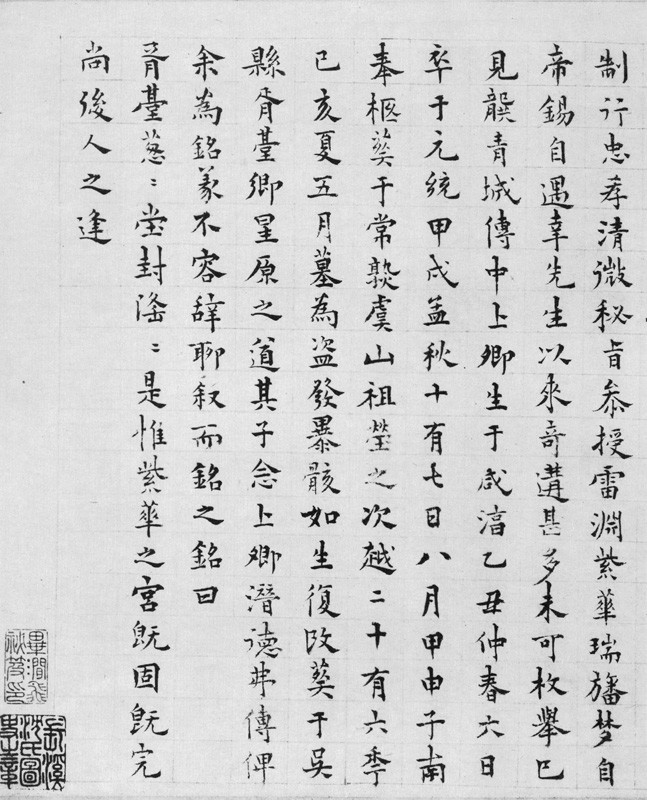 制行忠孝清微秘旨叅授雷淵紫華瑞旛梦自
帝錫自遇幸先生以來奇遘甚多未可枚舉已
見青城傳中上卿生于咸淳乙丑仲春六日
卒于元統甲戌孟秋十有七日八月甲申子南
奉柩葬于常熟虞山祖塋之次越二十有六季
已亥夏五月墓為盜發暴骸如生復改葬于吳
縣胥臺鄉星原之道其子念上卿潛德弗傳俾
余為銘義不容辭聊叙而銘之銘曰
胥臺葱〻堂封滃〻是惟紫華之宮旣固旣完
尚後人之逢
畢澗飛秘笈印